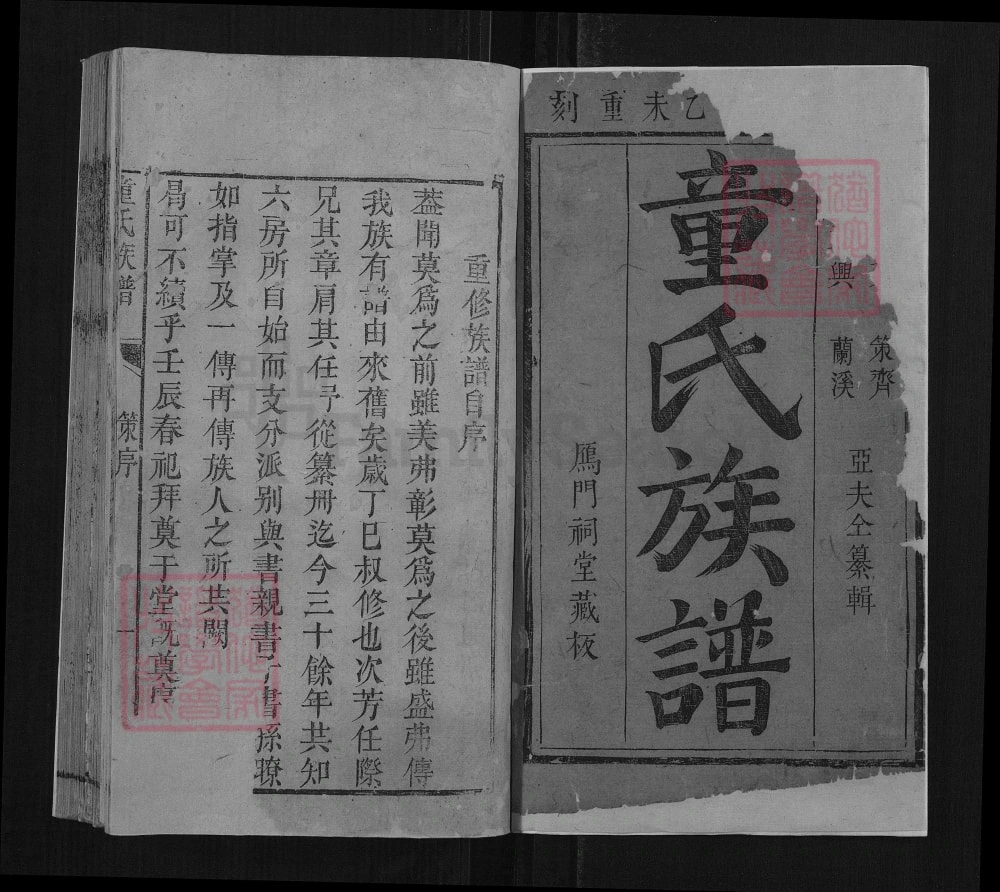 乙未重刻
興
策齊
蘭溪
亞夫仝纂輯
童氏族譜
鴈門祠堂藏板
重修族譜自序
蓋聞莫爲之前雖美弗彰莫爲之後雖盛弗傳
我族有譜由來舊矣歲丁巳叔修也次芳任際
兄其章肩其任予從纂冊迄今三十餘年共知
六房所自始而支分派别與書親書子書孫瞭
如指掌及一傳再傳族人之所共闕
可不續乎壬辰春祀拜奠于堂既奠
童氏族譜
策序
一